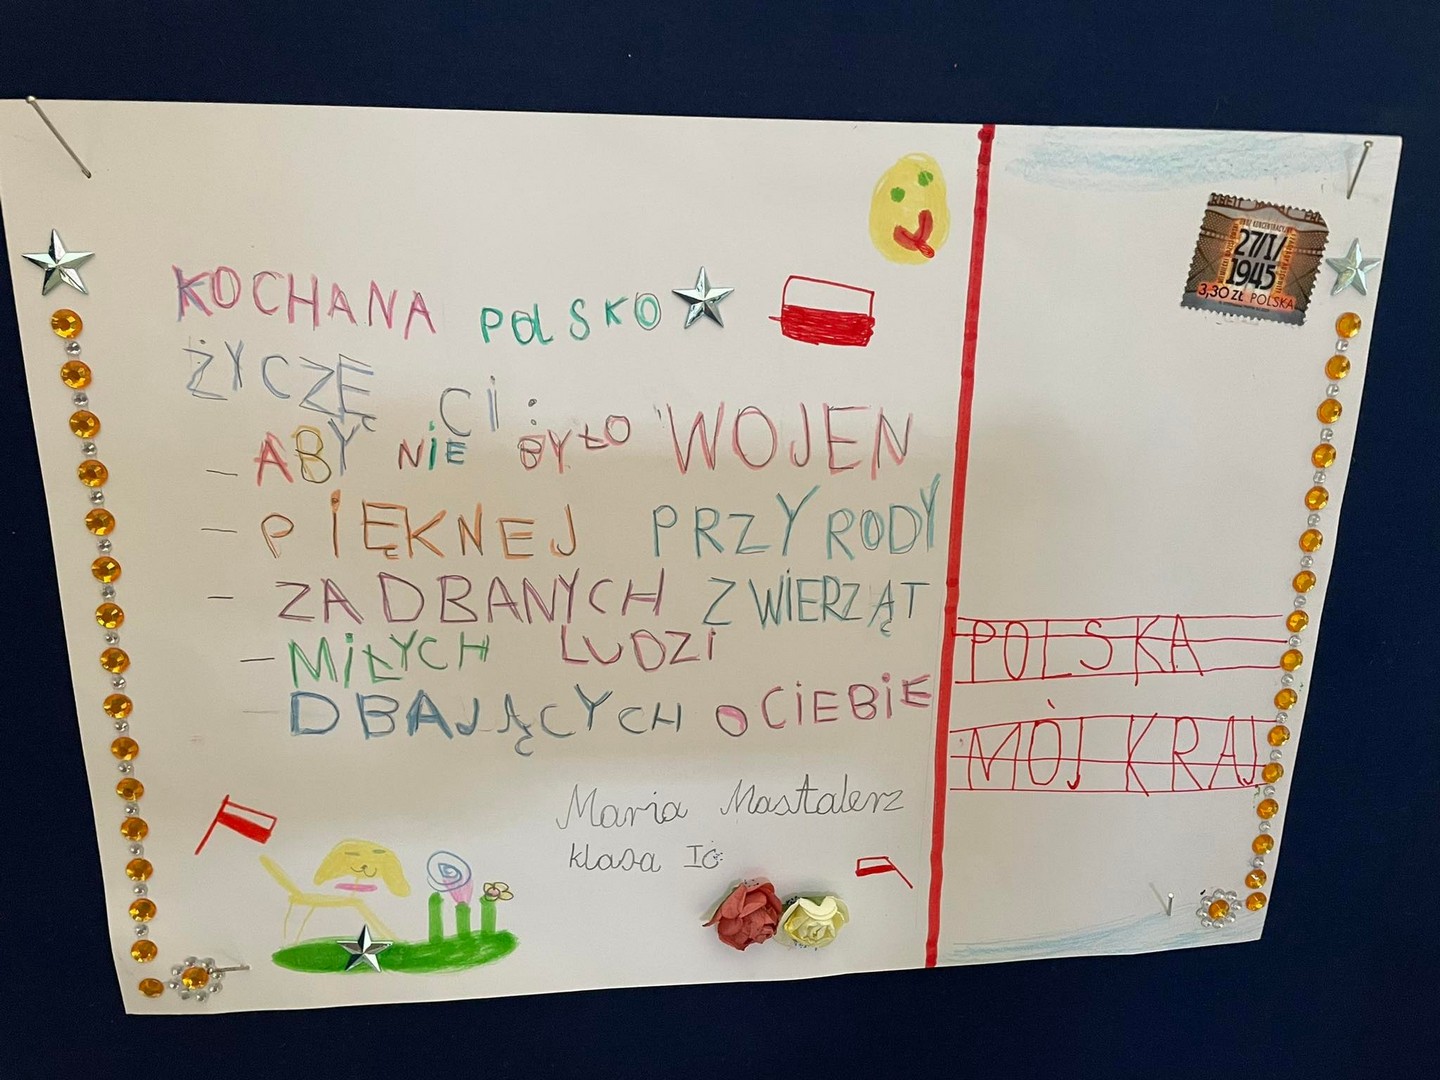 KOCHANA POLSKO
ŻYCZĘ CI:
- ABY NIE BYŁO WOJEN
- PIĘKNEJ PRZYRODY
- ZADBANYCH ZWIERZĄT
- MIŁYCH LUDZI
- DBAJĄCYCH O CIEBIE
Maria Mastalerz
klasa Ic
27/I/
1945
3,30 ZŁ POLSKA
POLSKA
MÓJ KRAJ